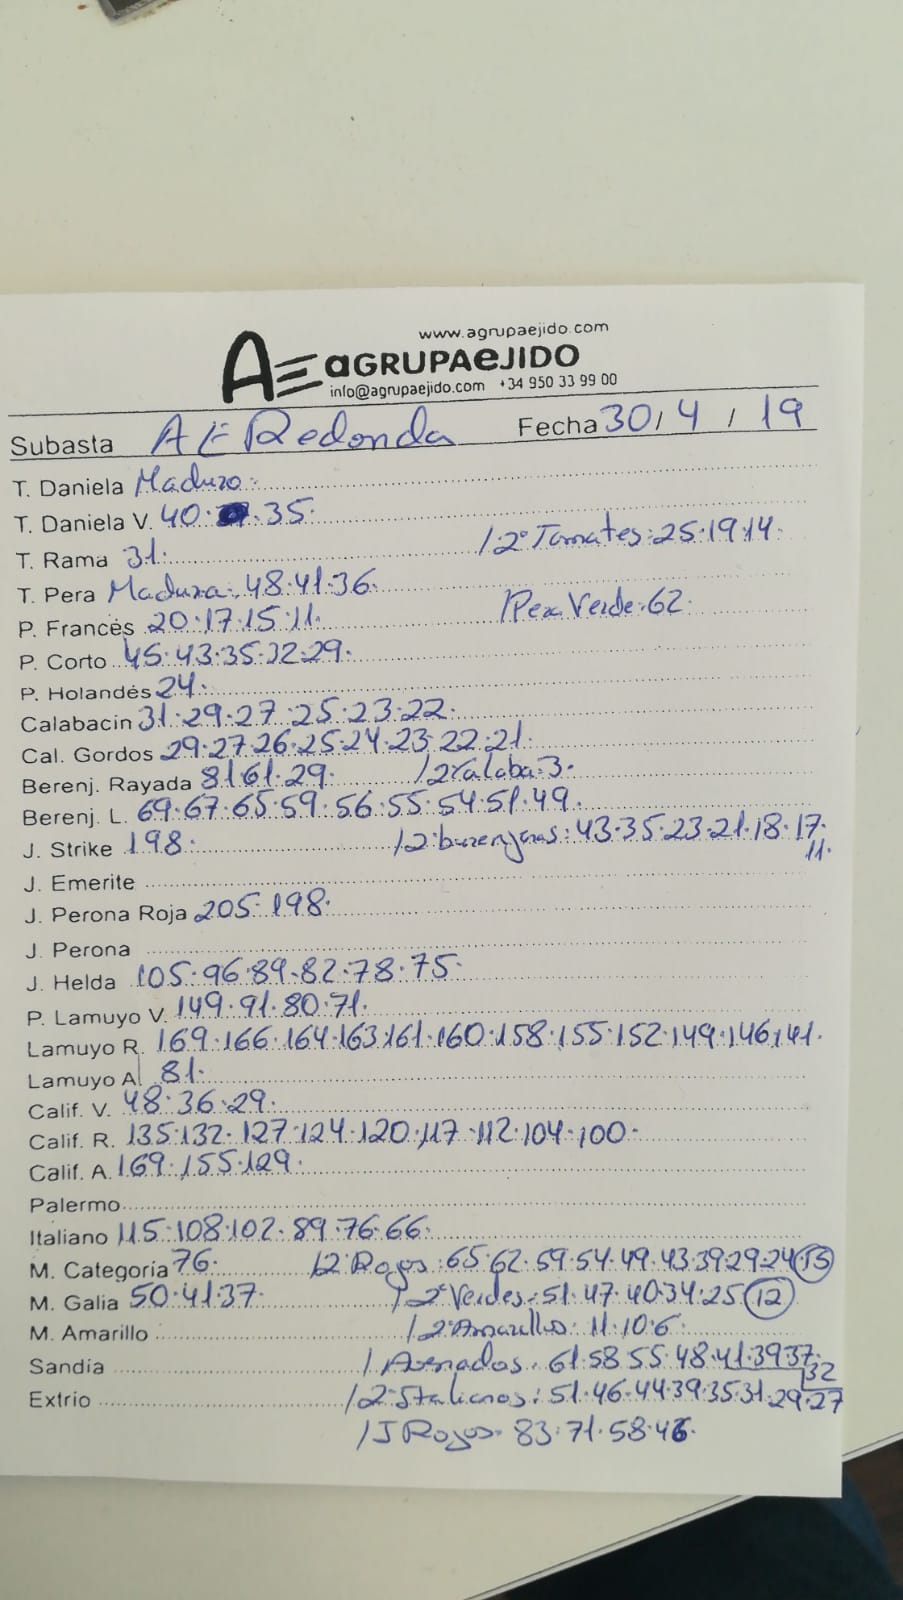 www.agrupaejido.com
AE aGRUPAeJIDO
info@agrupaejido.com +34 950 33 99 00
Subasta AE Redonda Fecha 30/4/19
T. Daniela Maduro.
T. Daniela V. 40. .35.
T. Rama 31. /2ª Tomates: 25.19.14.
T. Pera Madura: 48.41.36.
P. Francés 20.17.15.11. /Pera Verde: 62.
P. Corto 45.43.35.32.29.
P. Holandés 24.
Calabacin 31.29.27.25.23.22.
Cal. Gordos 29.27.26.25.24.23.22.21.
Berenj. Rayada 81.61.29. /2ª Calaba: 3.
Berenj. L. 69.67.65.59.56.55.54.51.49.
J. Strike 198. /2ª berenjenas: 43.35.23.21.18.17.
11.
J. Emerite
J. Perona Roja 205.198.
J. Perona
J. Helda 105.96.89.82.78.75.
P. Lamuyo V. 149.91.80.71.
Lamuyo R. 169.166.164.163.161.160.158.155.152.149.146.141.
Lamuyo A. 81.
Calif. V. 48.36.29.
Calif. R. 135.132.127.124.120.117.112.104.100.
Calif. A. 169.155.129.
Palermo
Italiano 115.108.102.89.76.66.
M. Categoría 76. /2ª Rojos: 65.62.59.54.49.43.39.29.24.15
M. Galia 50.41.37. /2ª Verdes: 51.47.40.34.25.12
M. Amarillo /2ª Amarillo: 11.10.6.
Sandía /Asurados. 61.58.55.48.41.39.37.
32
Extrio /2ª Italianos: 51.46.44.39.35.31.29.27
/J Rojos. 83.71.58.46.